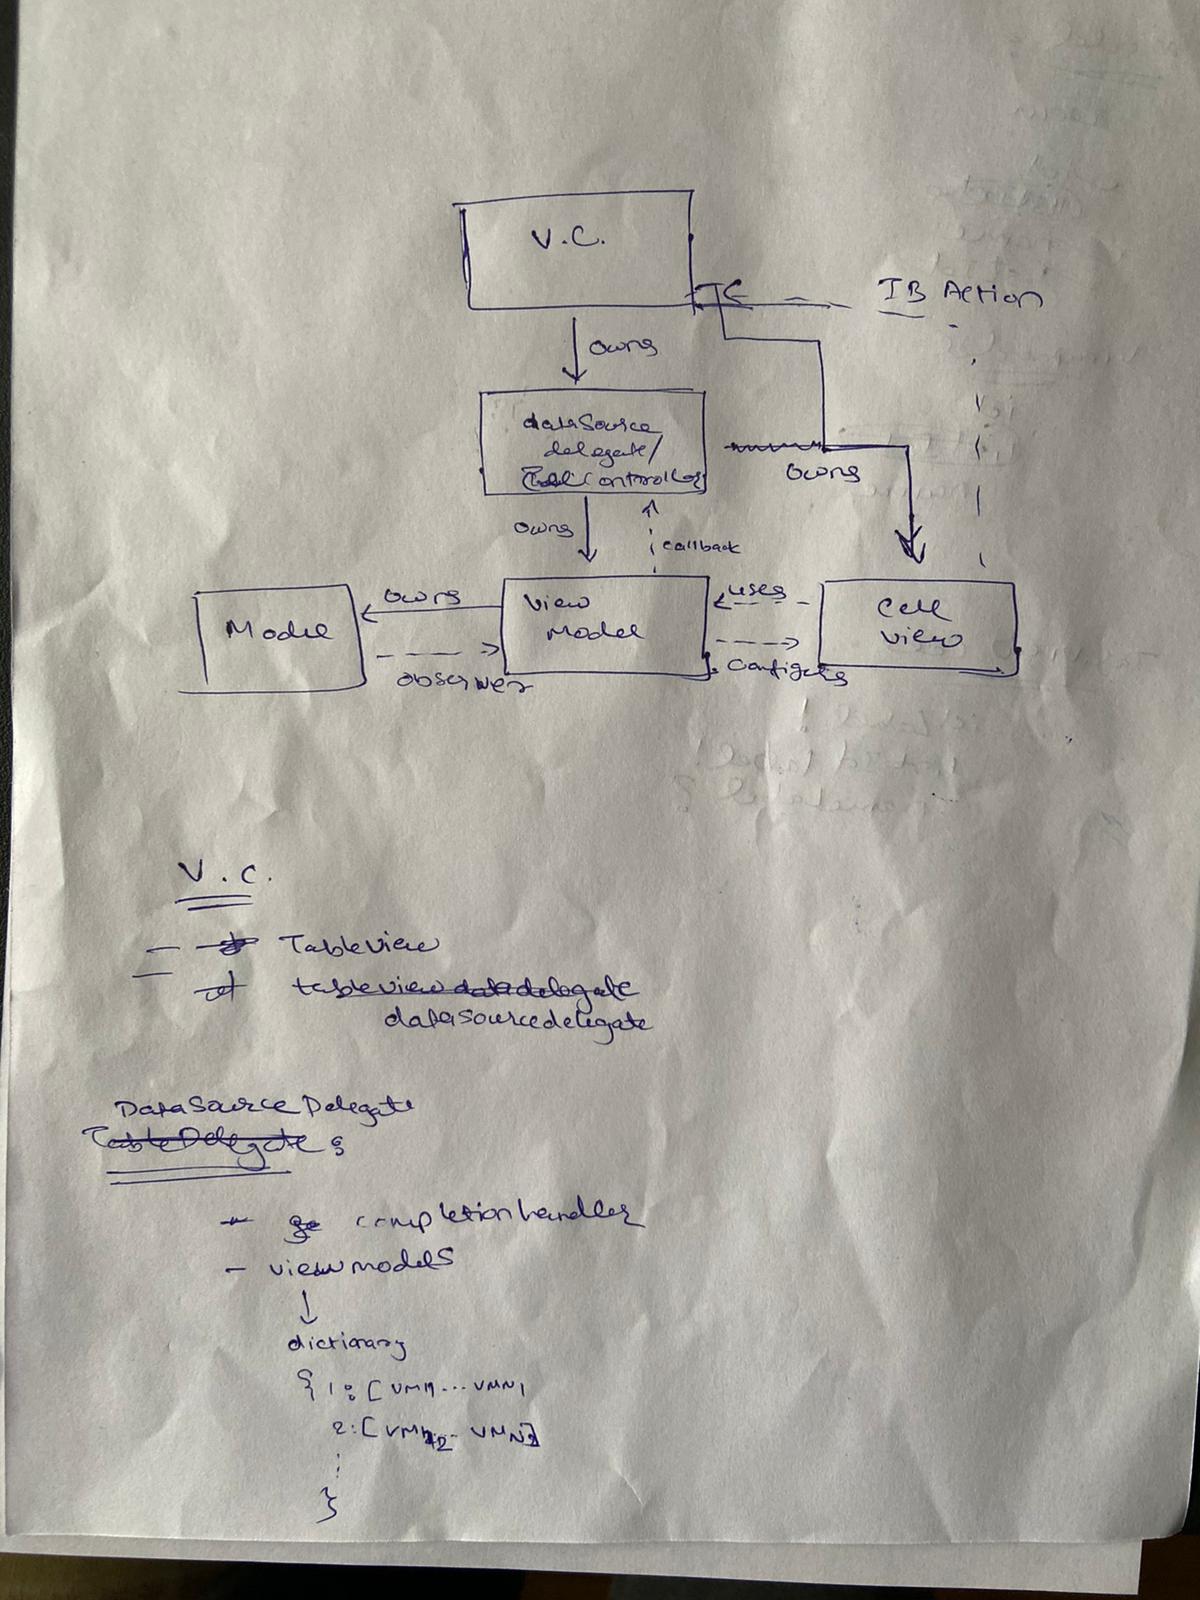 V.C.
IB Action
owns
dataSource
delegate/
Controller
owns
owns
callback
Model
owns
observer
View
Model
uses
configures
Cell
view
V.C.
TableView
tableview datadelegate
datasourcedelegate
DataSource Delegate
TableDelegate :
- completionhandler
- viewmodels
↓
dictionary
{ 1: [ VM11 ... VMN1
2: [ VM12 ... VMN2]
}